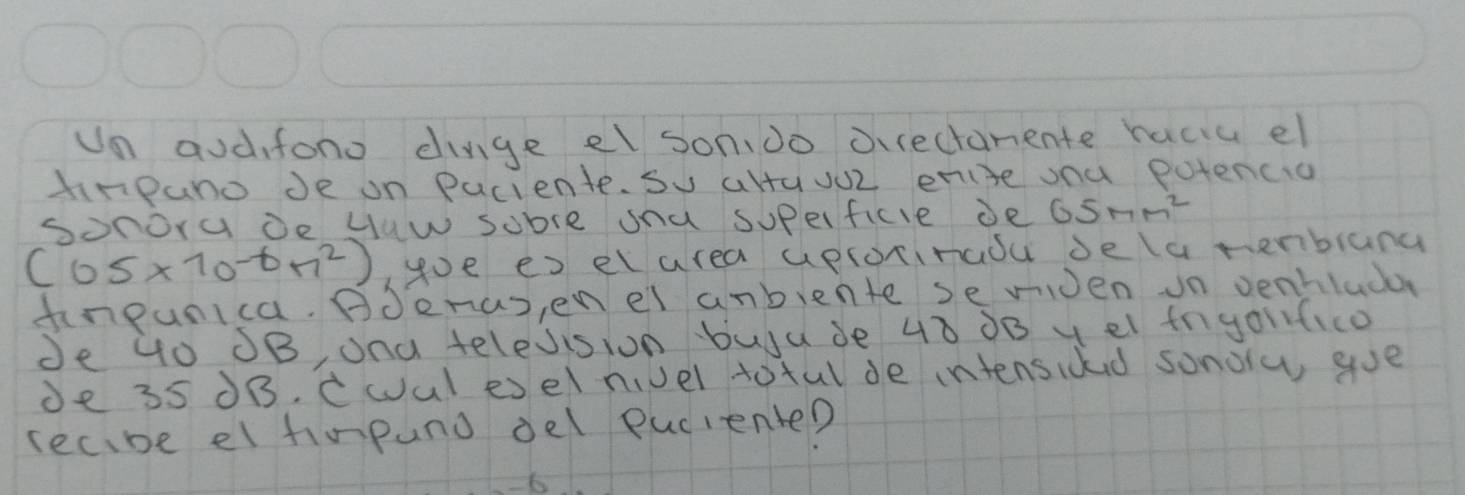 Un audifono dirige el sonido directamente hacia el
timpano de un paciente. Su altavoz emite una potencia
sonora de 4uw sobre una superficie de 65mm²
(65x10-6m²), que es el area aproximada de la membrana
timpanica. Ademas, en el ambiente se miden un ventilador
de 40 dB, una television baja de 48 dB y el frigorifico
de 35 dB. ¿cual es el nivel total de intensidad sonora, que
recibe el timpano del paciente?
-6